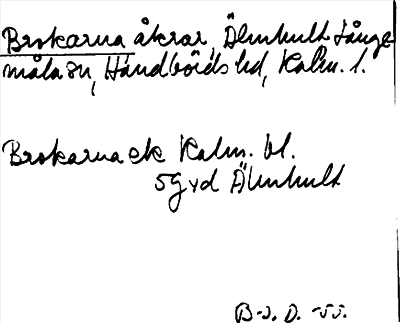 Brokarna åkrar, Älmhult Långe-
måla sn, Handbörds hd, Kalm. l.
Brokarna ek Kalm. bl.
5 G vd Älmhult
B-s. D. -55.